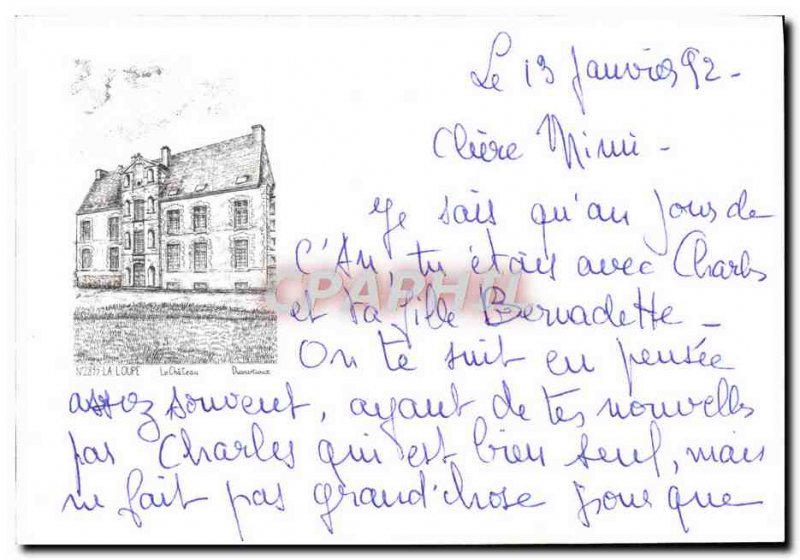 Le 13 Janvier 92 -
Chère Mimi -
Je sais qu'au jour de
l'An, tu étais avec Charles
et sa fille Bernadette -
CPAPHIL
On te suit en pensée
N°2895 LA LOUPE Le Château
assez souvent, ayant de tes nouvelles
par Charles qui est bien seul, mais
ne fait pas grand'chose pour que